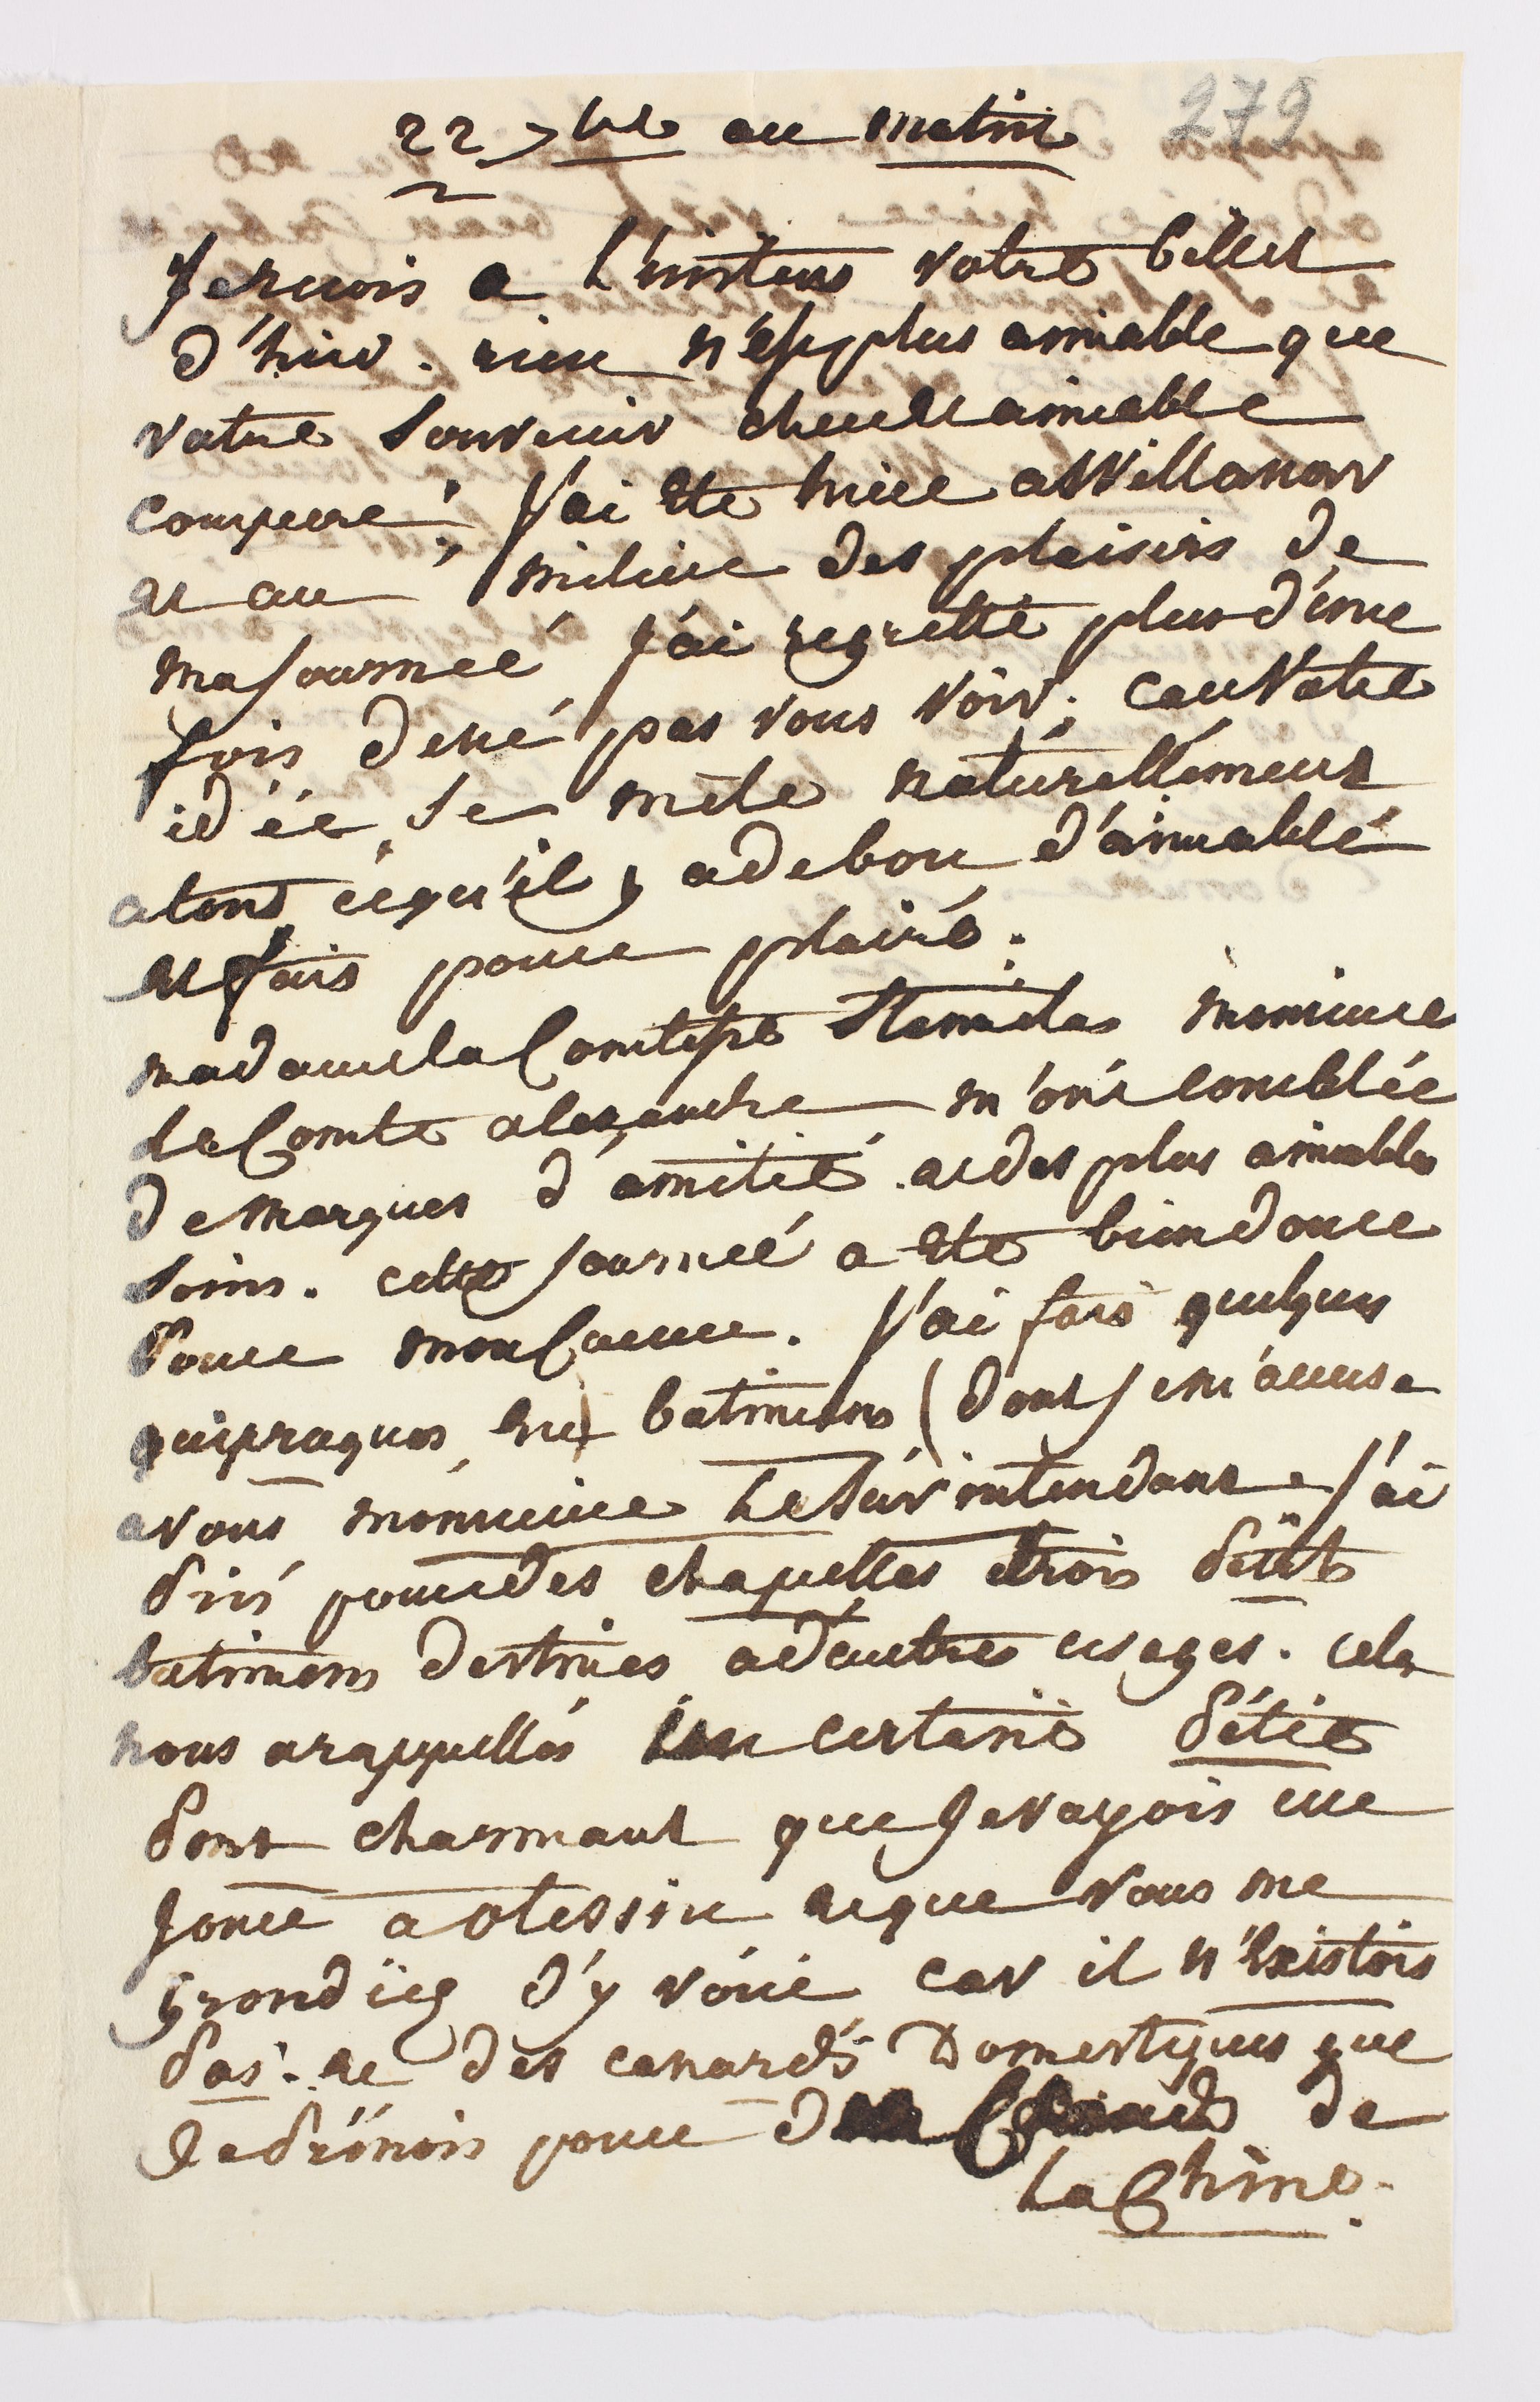 279
22 7bre au matin
Je recois a L'instens votre billet
d'hier. rien n'est plus aimable que
votre Souvenir cher et aimable
compere! J'ai ete hier a Willanow
et au milieu des plaisirs de
ma journeé j'ai regretté plus d'une
fois de né pas vous voir; car votre
idéé se mele naturellement
a tout ce qu'il y a de bon d'aimablé
et fais pour plairé.
madame la Comtesse Stanislas monsieur
le Comte alexandre m'ont comblée
de marques d'amitié et des plus aimables
Soins. cette journeé a ete bien douce
pour mon Coeur. J'ai fais quelques
quipraquos en batimens (dont je m'accuse
a vous monsieur Le Surintendant. J'ai
pris pour des chapelles trois petits
batimens destinés a d'autres usages. cela
nous a rappellés un certain pétit
pont charmant que Je voyois un
Jour a olessin et que vous me
grondiez d'y voir car il n'existois
pas. et des canards Domestiques que
Je prënois pour de Canards de
La Chine.